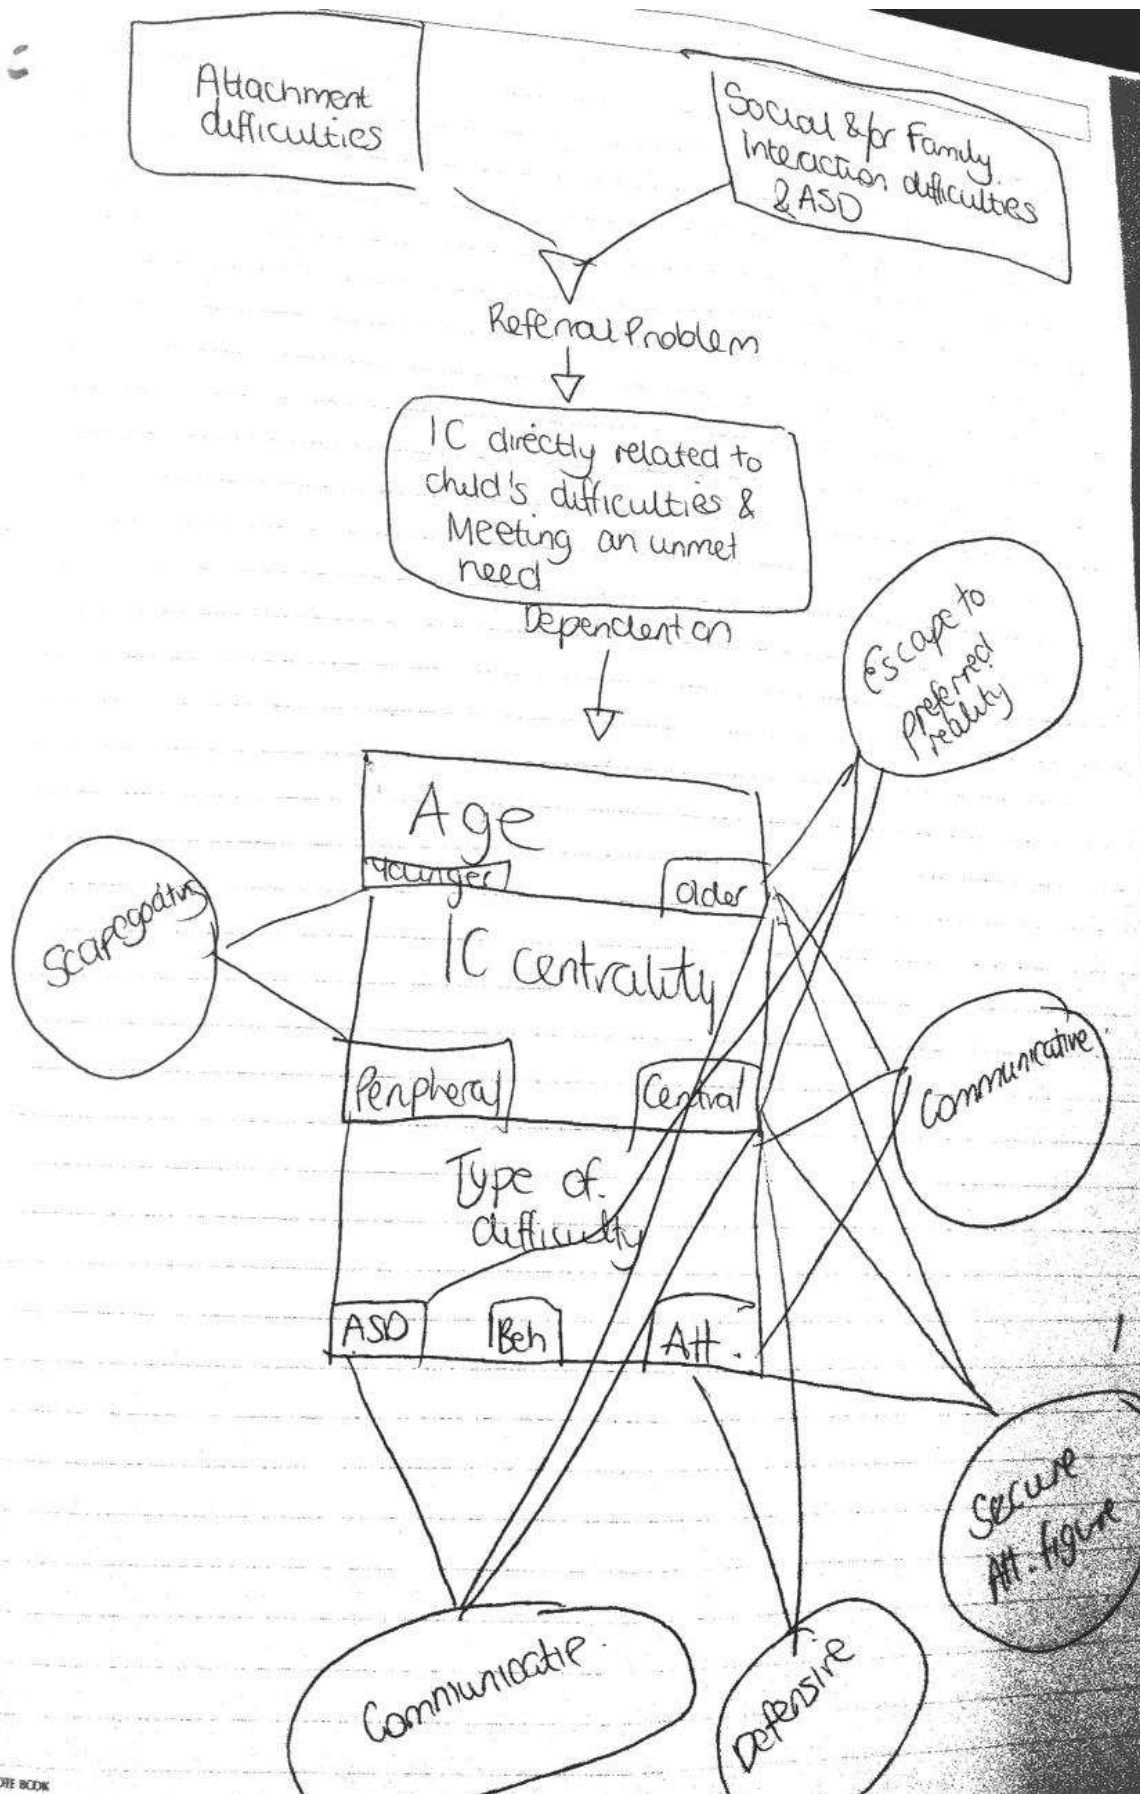 Attachment
difficulties
Social &/or Family
Interaction difficulties
& ASD
Referral Problem
IC directly related to
child's difficulties &
Meeting an unmet
need
Dependent on
Escape to
preferred
reality
Age
Younger
older
Scapegoating
IC centrality
Peripheral
Central
Communicative
Type of
difficulty
ASD
Beh
Att.
Secure
Att. figure
Communicatie
Defensive
OTE BOOK